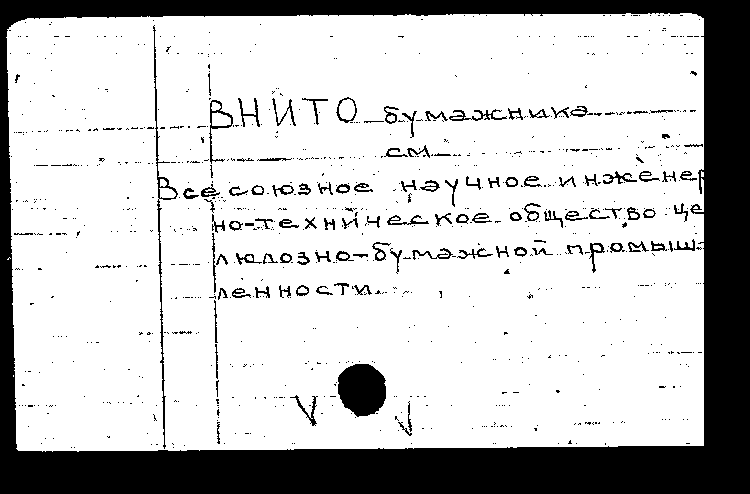 ВНИТО бумажника
см
Всесоюзное научное инженер
но-техническое общество це
люлозно-бумажной промыш-
ленности.